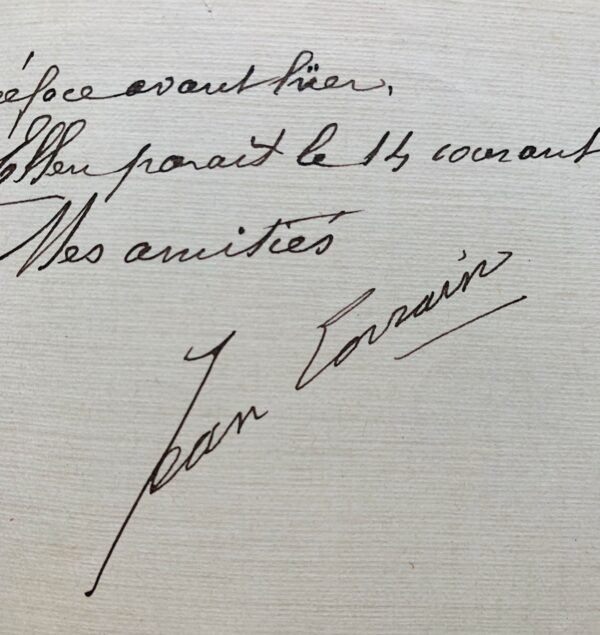 éface avant hier,
Ellen parait le 14 courant
Mes amitiés
Jean Lorrain